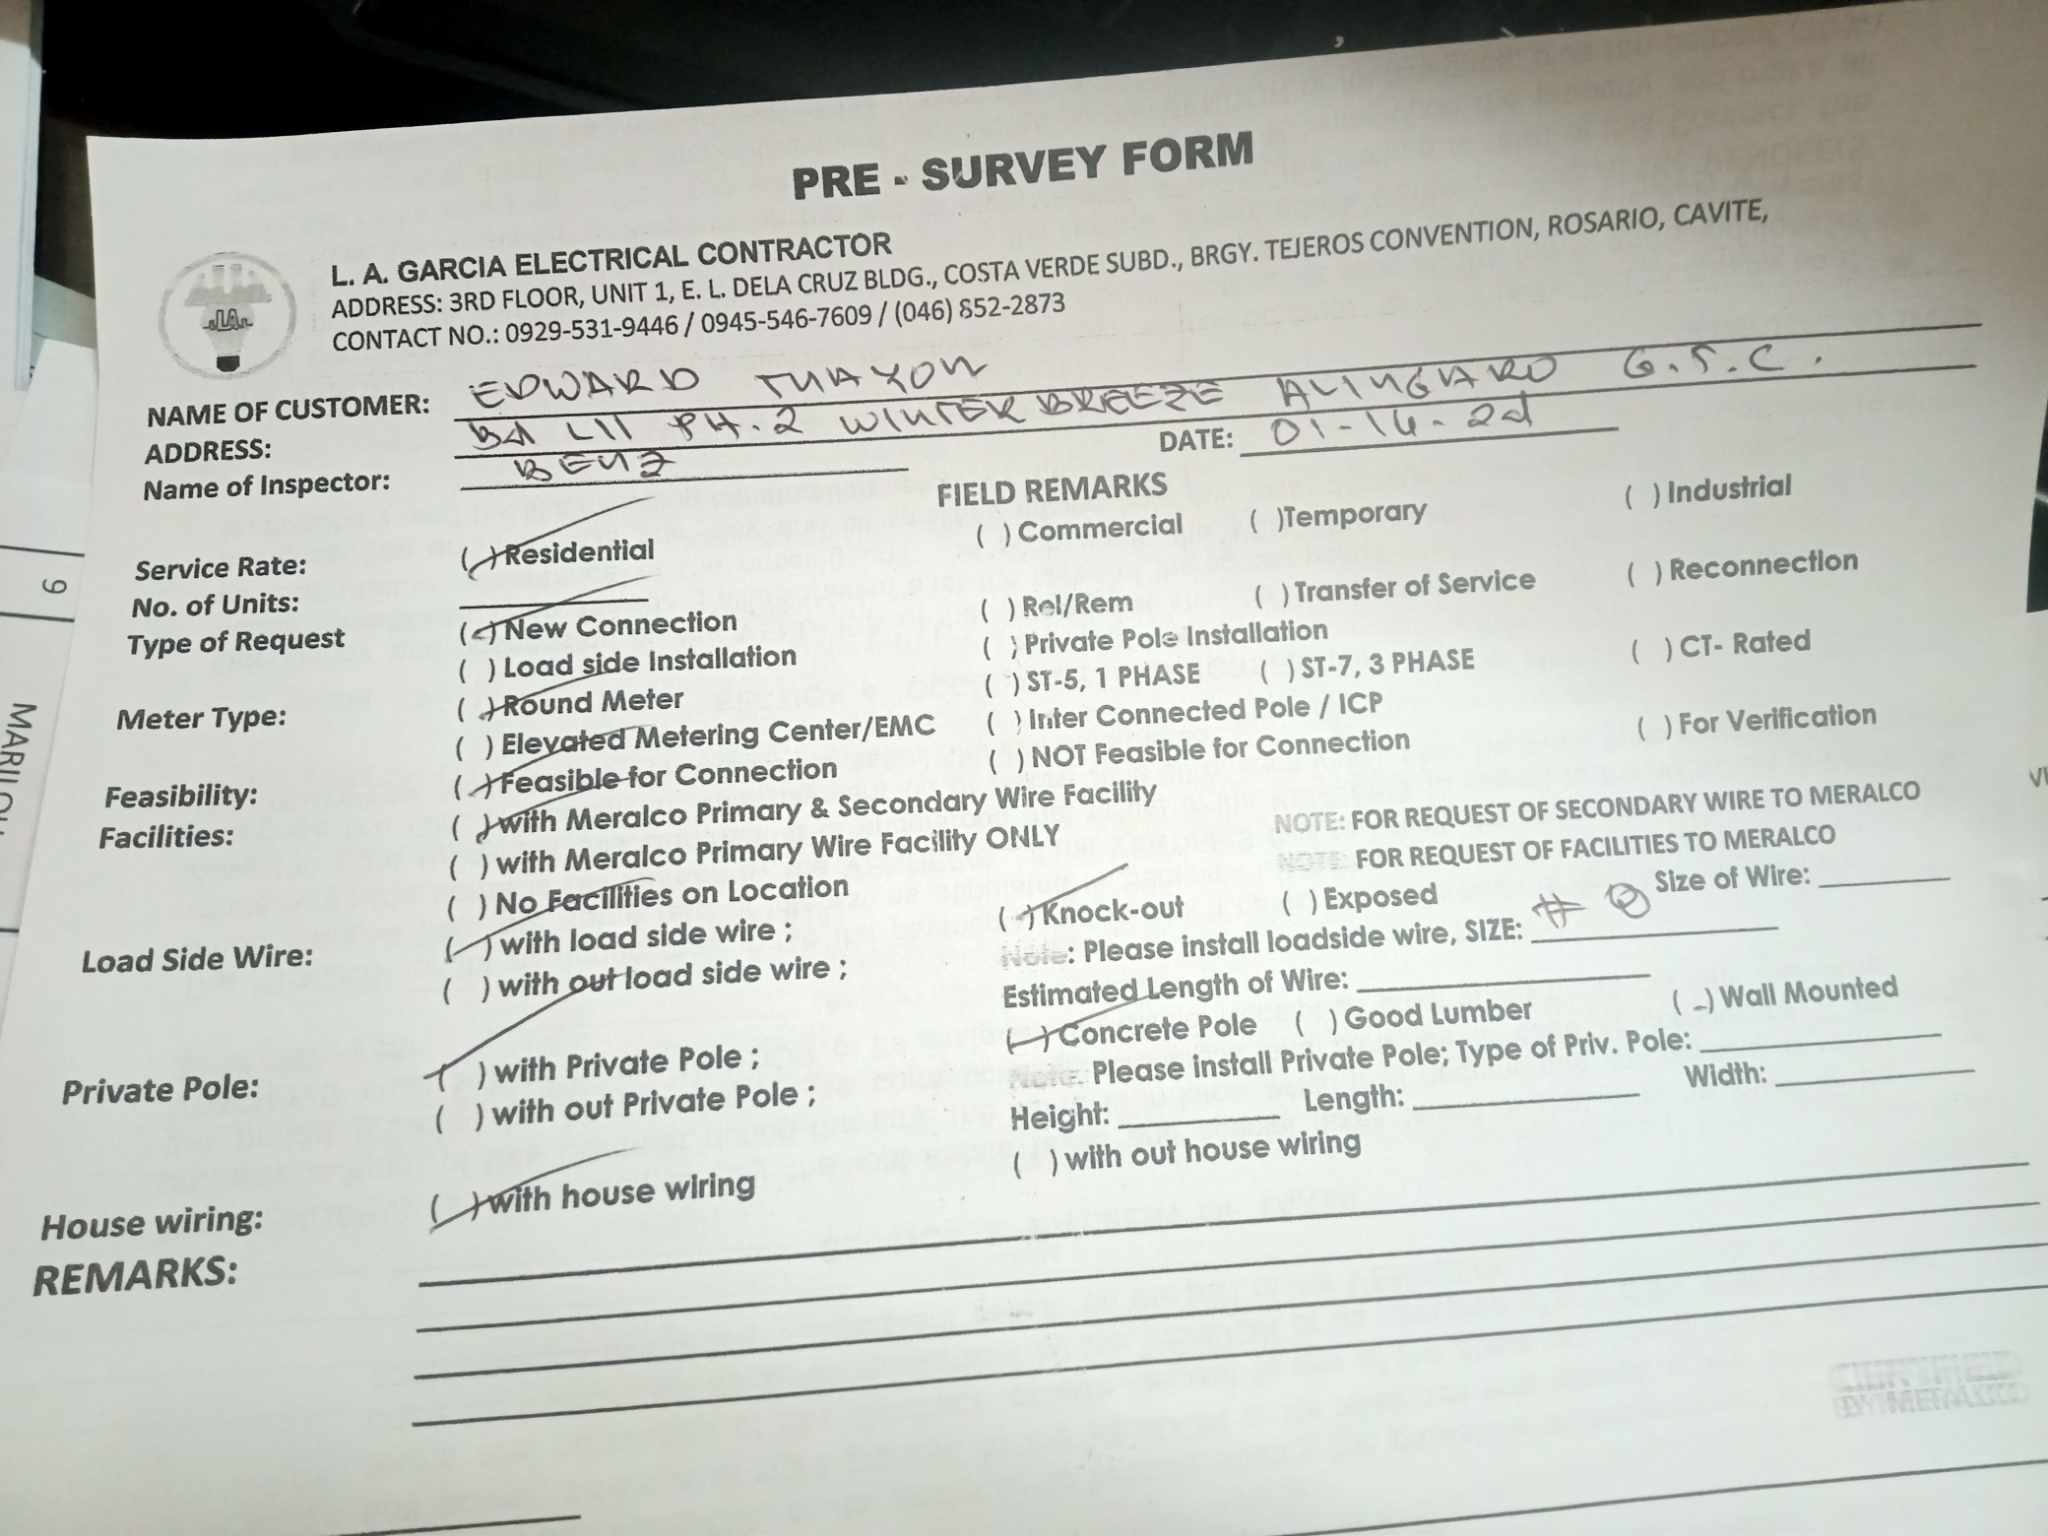 PRE - SURVEY FORM
L. A. GARCIA ELECTRICAL CONTRACTOR
ADDRESS: 3RD FLOOR, UNIT 1, E. L. DELA CRUZ BLDG., COSTA VERDE SUBD., BRGY. TEJEROS CONVENTION, ROSARIO, CAVITE,
CONTACT NO.: 0929-531-9446 / 0945-546-7609 / (046) 852-2873
NAME OF CUSTOMER: EDWARD
ADDRESS: PH. 2 WINTER BREEZE ALINGARO G.T.C.
Name of Inspector: BENZ DATE:
FIELD REMARKS
Service Rate: ( ) Residential ( ) Commercial ( ) Temporary ( ) Industrial
No. of Units:
Type of Request ( ) New Connection ( ) Rel/Rem ( ) Transfer of Service ( ) Reconnection
( ) Load side Installation ( ) Private Pole Installation
Meter Type: ( ) Round Meter ( ) ST-5, 1 PHASE ( ) ST-7, 3 PHASE ( ) CT- Rated
( ) Elevated Metering Center/EMC ( ) Inter Connected Pole / ICP
Feasibility: ( ) Feasible for Connection ( ) NOT Feasible for Connection ( ) For Verification
Facilities: ( ) with Meralco Primary & Secondary Wire Facility
( ) with Meralco Primary Wire Facility ONLY NOTE: FOR REQUEST OF SECONDARY WIRE TO MERALCO
( ) No Facilities on Location NOTE: FOR REQUEST OF FACILITIES TO MERALCO
Load Side Wire: ( ) with load side wire ; ( ) Knock-out ( ) Exposed Size of Wire:
( ) with out load side wire ; Note: Please install loadside wire, SIZE: #
Estimated Length of Wire:
Private Pole: ( ) with Private Pole ; ( ) Concrete Pole ( ) Good Lumber ( ) Wall Mounted
( ) with out Private Pole ; Note. Please install Private Pole; Type of Priv. Pole:
Height: Length: Width:
House wiring: ( ) with house wiring ( ) with out house wiring
REMARKS:
9